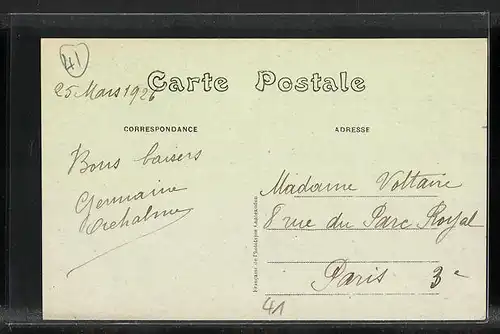 41
25 Mars 1926
Carte Postale
CORRESPONDANCE
ADRESSE
Bons baisers
Germaine
Madame Voltaire
8 rue du Parc Royal
Paris 3e
41